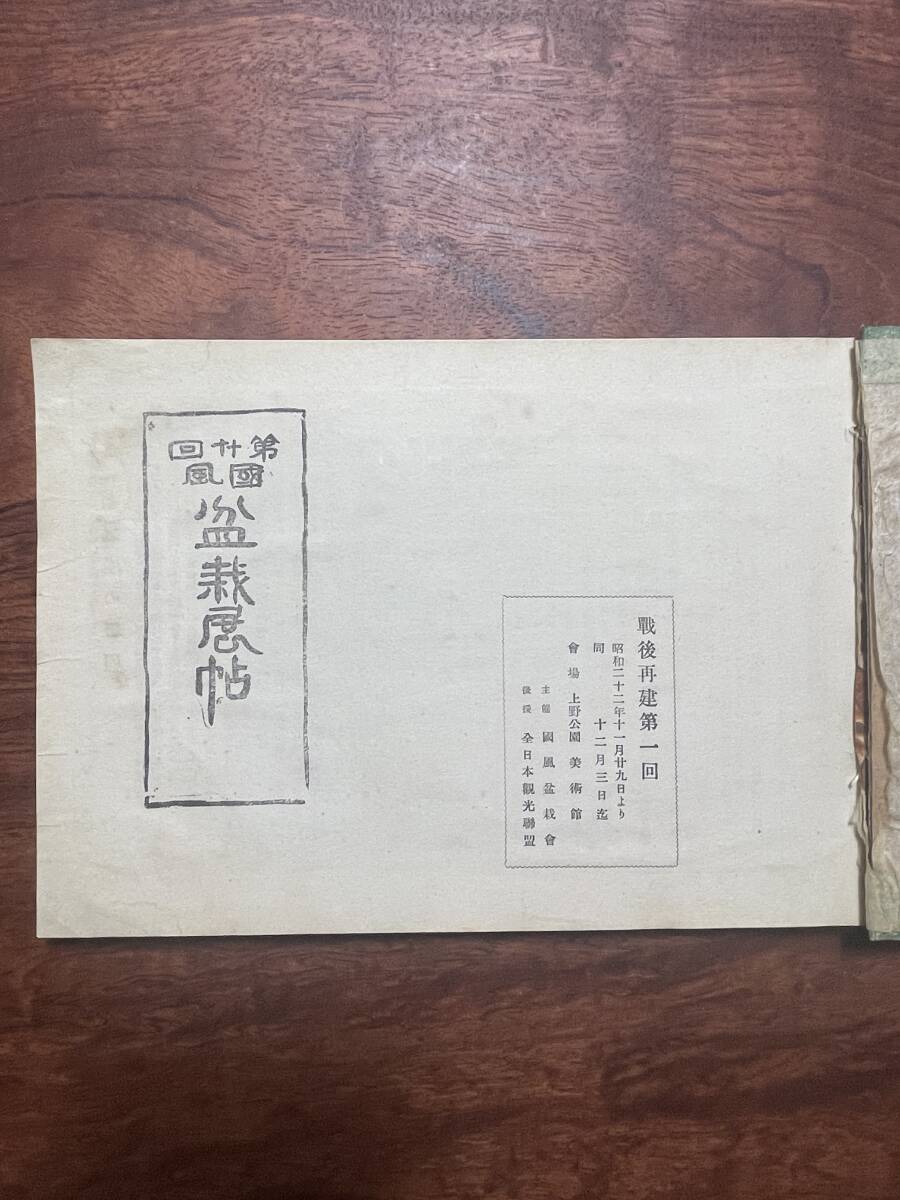 戰後再建第一回
昭和二十二年十一月廿九日より
同　十二月三日迄
會場 上野公園美術館
主催 國風盆栽會
後援 全日本觀光聯盟
第廿回
國風
盆栽展帖